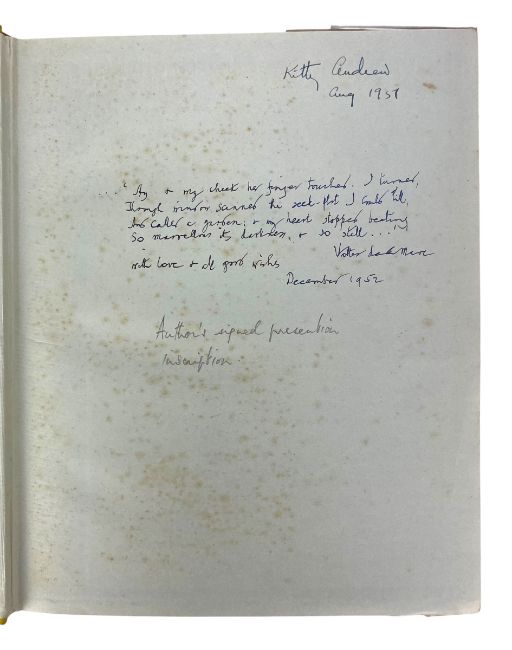 Kitty Andrew
Aug 1937
....' Ay & my cheek her finger touched. I turned,
Through window scanned the seed-plot I could till,
And called a garden; & my heart stopped beating
So marvellous its darkness, & so still....'
Walter de la Mare
with love & all good wishes
December 1952
Author's signed presention
inscription.